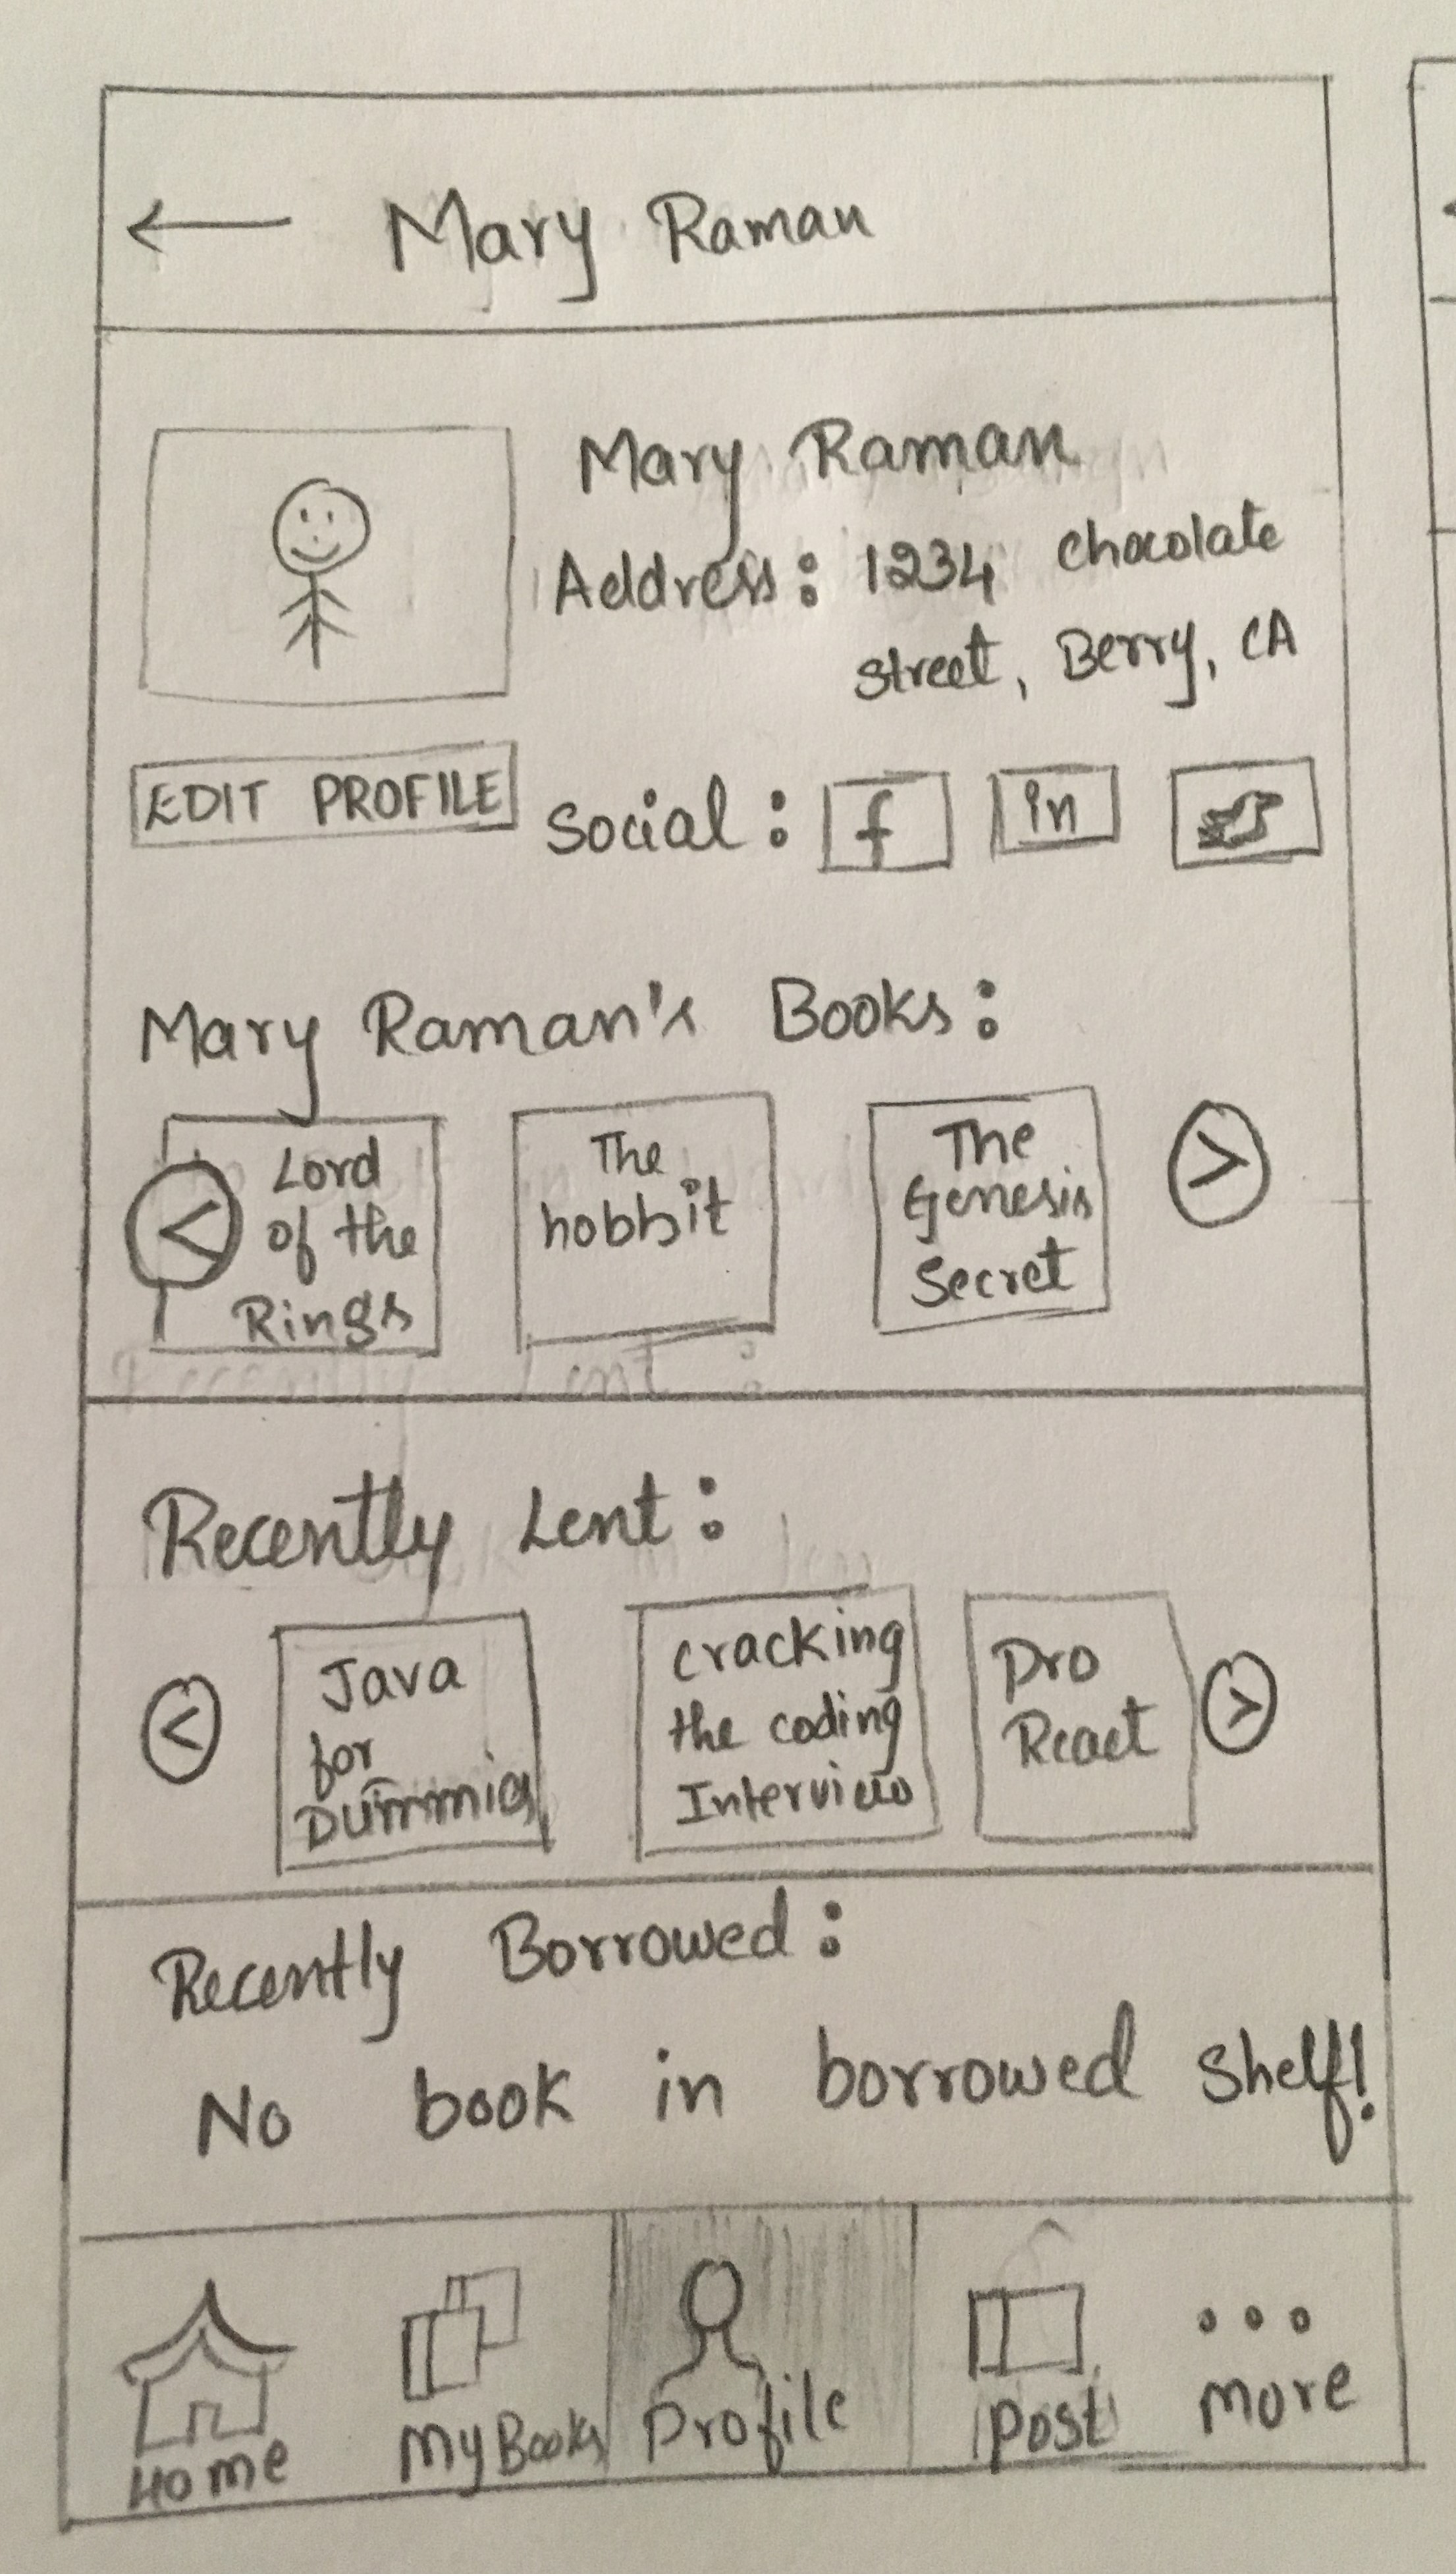 Mary Raman
Mary Raman
Address: 1234 chocolate
street, Berry, CA
EDIT PROFILE
Social: f in
Mary Raman's Books:
< Lord of the Rings
The hobbit
The Genesis Secret
>
Recently Lent:
<
Java for Dummies
cracking the coding Interview
Pro React
>
Recently Borrowed:
No book in borrowed shelf!
Home
My Books
Profile
Post
more